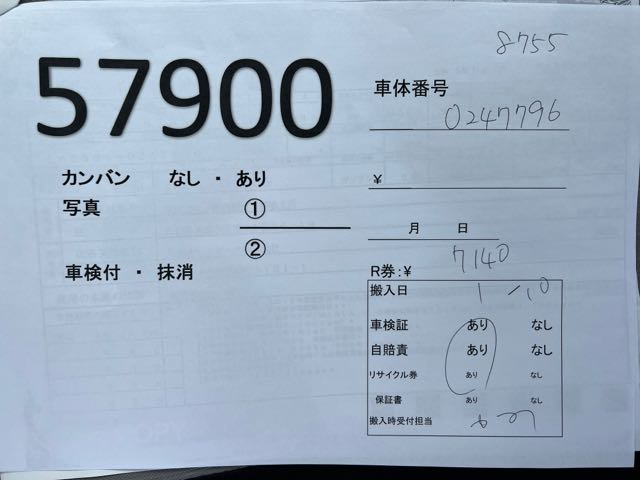 8755
57900
車体番号
0247796
カンバン なし ・ あり
¥
写真 ①
②
月 日
車検付 ・ 抹消
R券:¥ 7140
搬入日 1/10
車検証 あり なし
自賠責 あり なし
リサイクル券 あり なし
保証書 あり なし
搬入時受付担当